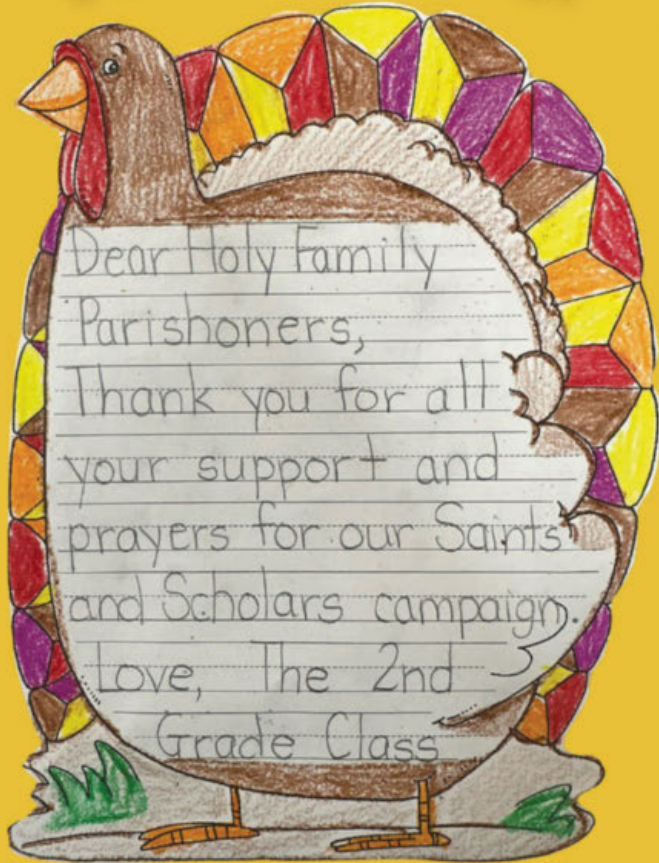 Dear Holy Family
Parishoners,
Thank you for all
your support and
prayers for our Saints
and Scholars campaign.
Love, The 2nd
Grade Class